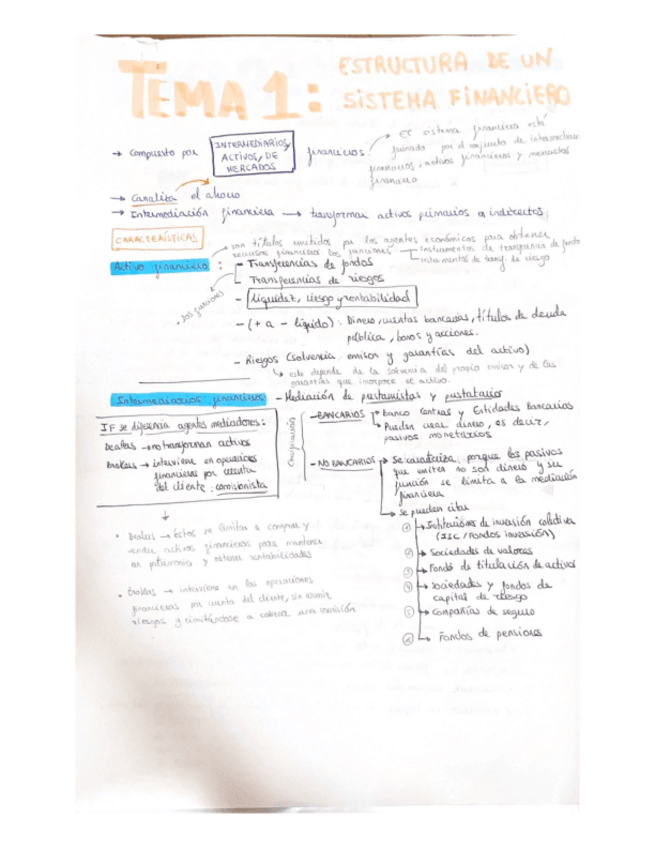 TEMA 1: ESTRUCTURA DE UN
SISTEMA FINANCIERO
→ Compuesto por INTERMEDIARIOS, ACTIVOS, DE MERCADOS financieros.
→ El sistema financiero está
formado por el conjunto de intermediarios
financieros, activos financieros y mercados
financiero
→ Canaliza el ahorro
→ Intermediación financiera → transformar activos primarios a indirectos
CARACTERÍSTICAS
→ son títulos emitidos por los agentes económicos para obtener
recursos financieros. Dos funciones
Instrumentos de transferencia de fondos
Instrumentos de transf. de riesgo
Activo financiero:
- Transferencias de fondos
Transferencias de riesgos
• Dos funciones
- liquidez, riesgo y rentabilidad
- (+ a - líquido): Dinero, cuentas bancarias, títulos de deuda
pública, bonos y acciones.
- Riesgos (solvencia emisor y garantías del activo)
↳ este depende de la solvencia del propio emisor y de las
garantías que incorpore el activo.
Intermediarios financieros
- Mediación de prestamistas y prestatario
IF se diferencia agentes mediadores:
Dealers → no transforman activos
Brokers → interviene en operaciones
financieras por cuenta
del cliente: comisionista
Clasificación
- BANCARIOS
Banco Central y Entidades Bancarias
Pueden crear dinero, es decir,
pasivos monetarios
- NO BANCARIOS
→ Se caracteriza porque los pasivos
que emiten no son dinero y su
función se limita a la mediación
financiera
→ Se pueden citar
① → Instituciones de invasión colectiva
(IIC / Fondos invasión)
② → Sociedades de valores
③ → Fondo de titulación de activos
④ → Sociedades y fondos de
capital de riesgo
⑤ → Compañías de seguro
⑥ → Fondos de pensiones
• Dealers → éstos se limitan a comprar y
vender activos financieros para mantener
un patrimonio y obtener rentabilidades
• Brokers → interviene en las operaciones
financieras por cuenta del cliente, sin asumir
riesgos y limitándose a cobrar una comisión